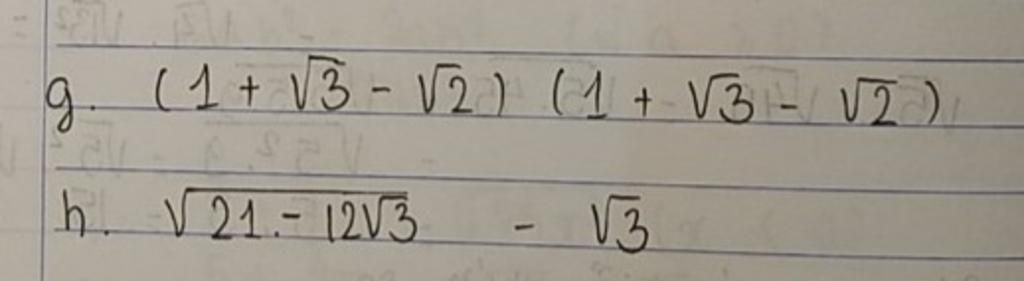 g. (1 + √3 - √2) (1 + √3 - √2)
h. √(21 - 12√3) - √3